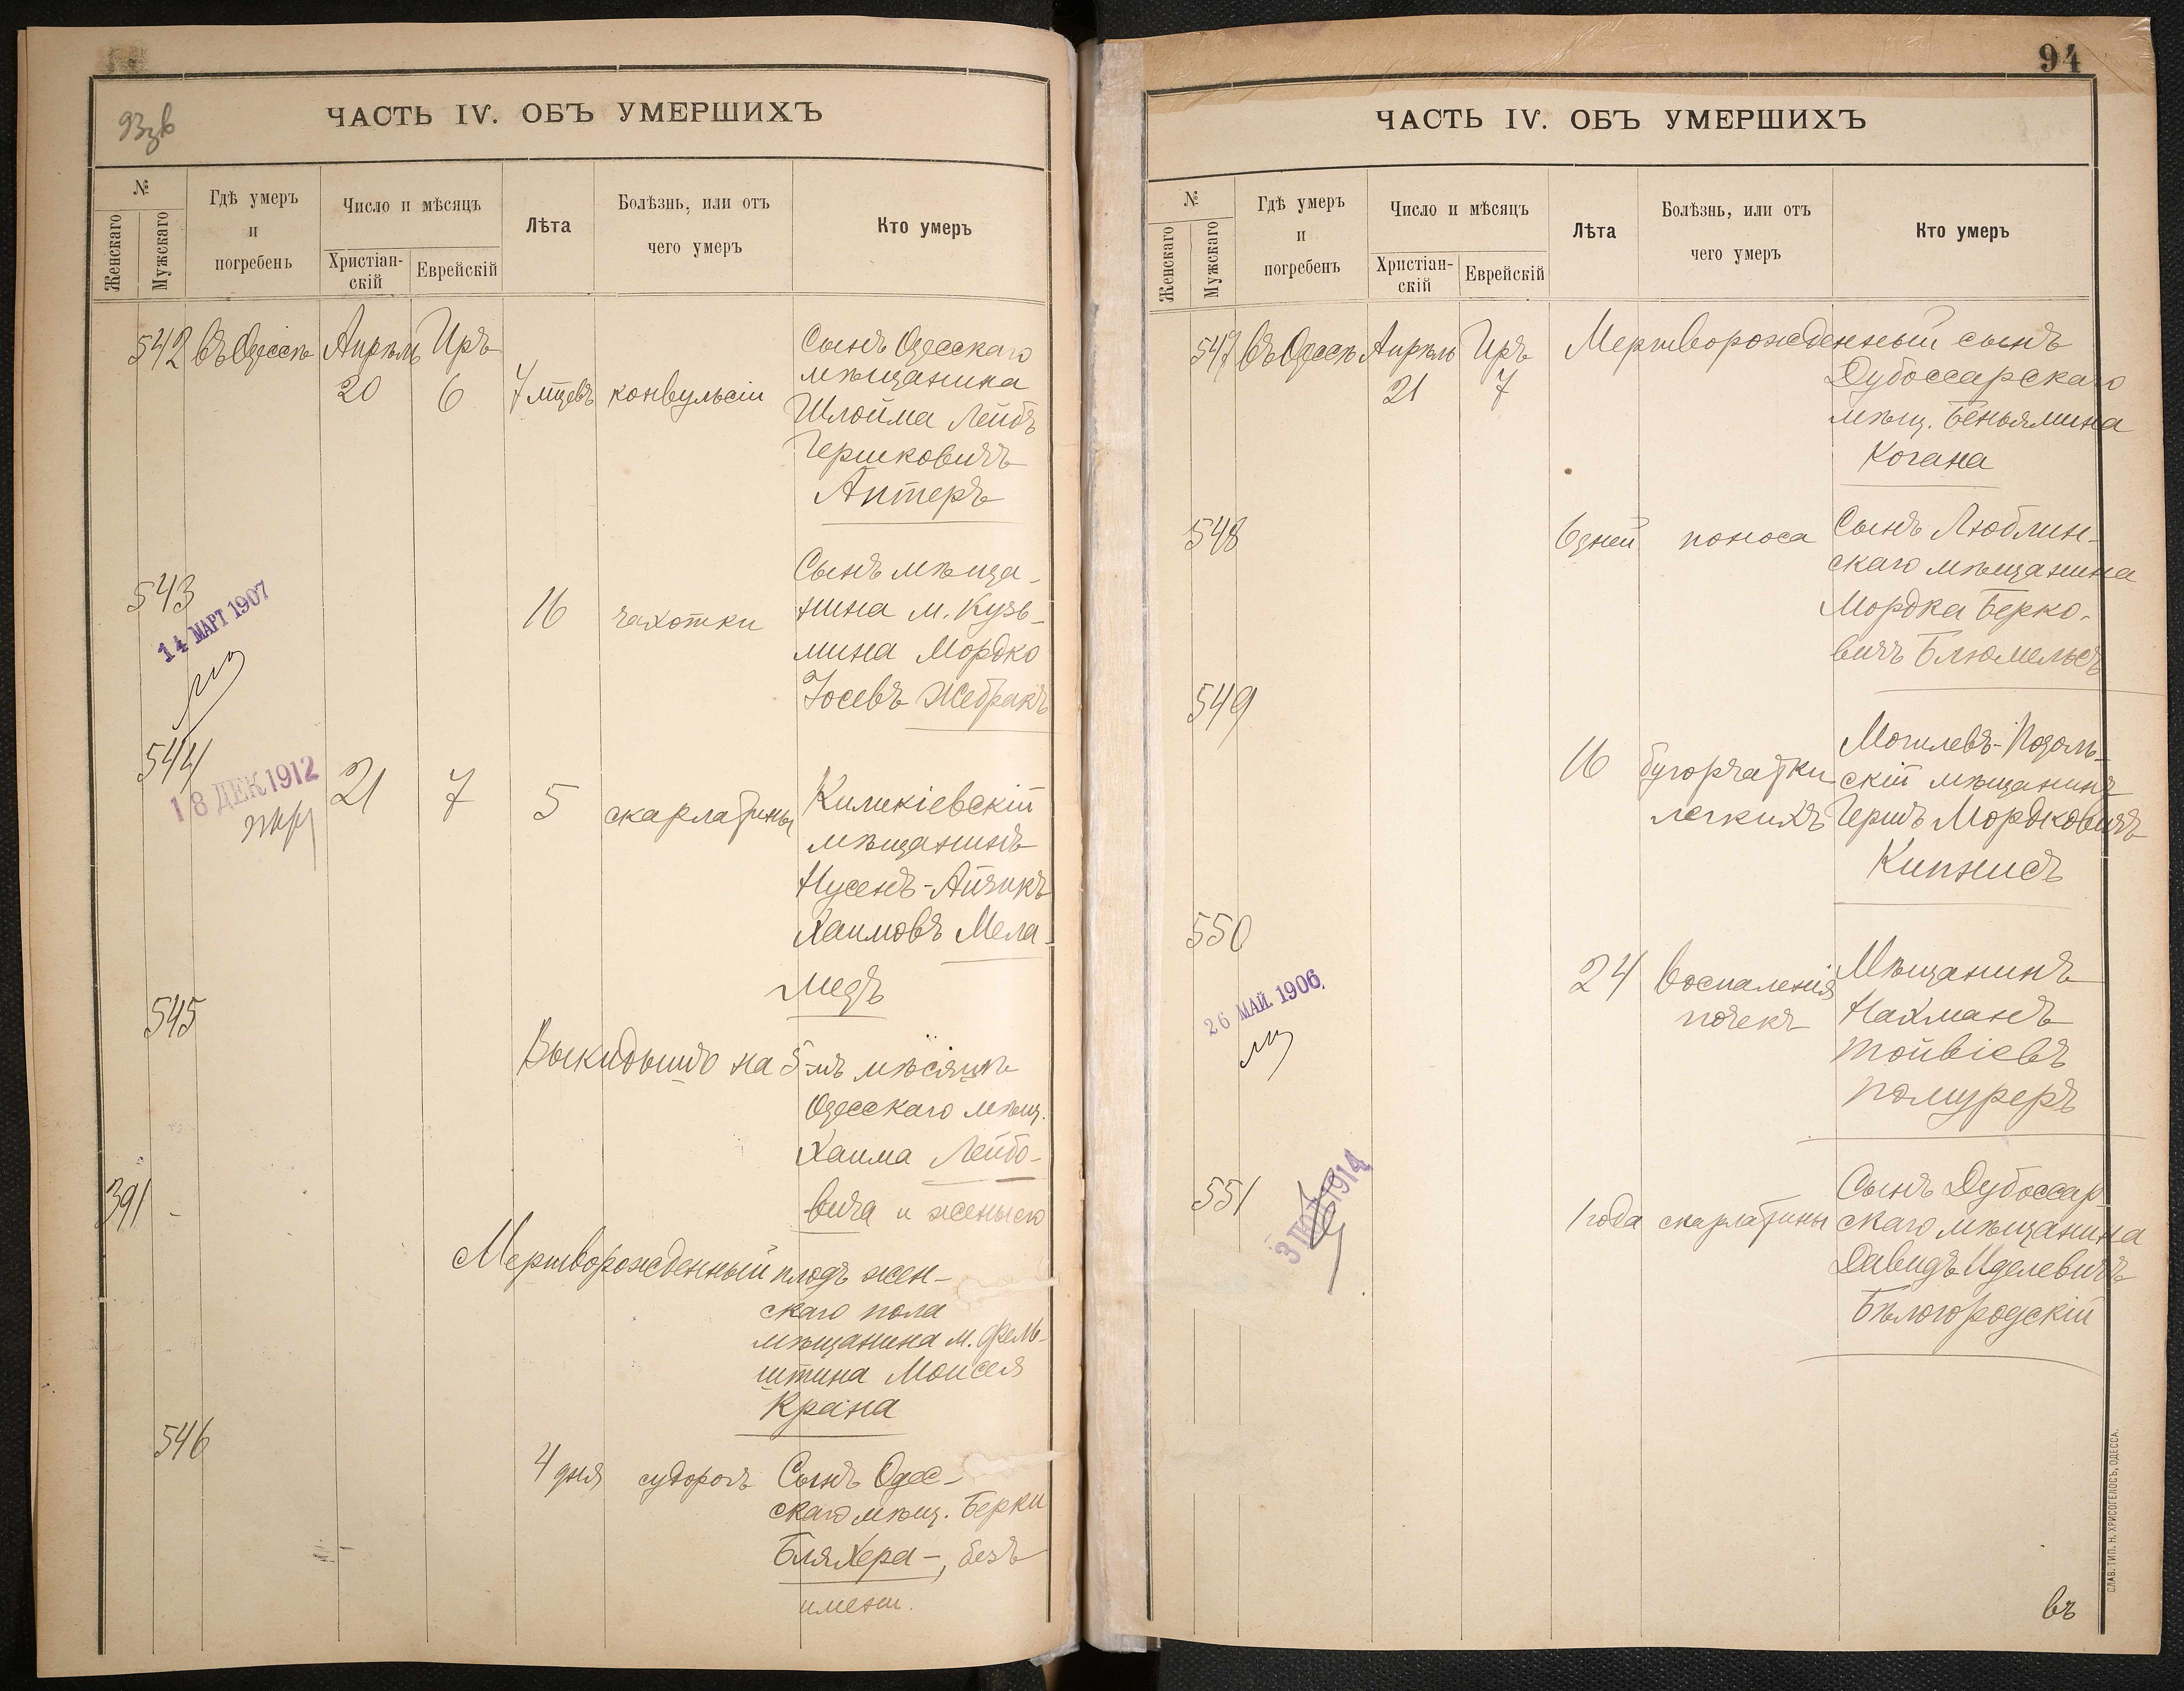 93 зв
ЧАСТЬ IV. ОБЪ УМЕРШИХЪ
№
Женскаго
Мужскаго
Гдѣ умеръ
и
погребенъ
Число и мѣсяцъ
Христіан-
скій
Еврейскій
Лѣта
Болѣзнь, или отъ
чего умеръ
Кто умеръ
542 въ Одессѣ Апрѣль Иръ
20 6 7 мѣцевъ конвульсіи
Сынъ Одесскаго
мѣщанина
Шлойма Лейбъ
Гершковичъ
Аптеръ
543
14 МАРТ 1907
16 чахотки
Сынъ мѣща-
нина м. Кузь-
мина Мордко
Іосевъ Жебракъ
544
18 ДЕК 1912
21 7 5 скарлатины
Киликіевскій
мѣщанинъ
Нусенъ-Айзикъ
Хаимовъ Мела-
медъ
545
Выкидышъ на 5-мъ мѣсяцѣ
Одесскаго мѣщ.
Хаима Лейбо-
вича и жены его
391 -
Мертворожденный плодъ жен-
скаго пола
мѣщанина м. Фель-
штина Моисея
Крана
546
4 дня судорогъ Сынъ Одес-
скаго мѣщ. Берки
Бляхера-, безъ
имени.
94
ЧАСТЬ IV. ОБЪ УМЕРШИХЪ
№
Женскаго
Мужскаго
Гдѣ умеръ
и
погребенъ
Число и мѣсяцъ
Христіан-
скій
Еврейскій
Лѣта
Болѣзнь, или отъ
чего умеръ
Кто умеръ
547 въ Одессѣ Апрѣль Иръ Мертворожденный сынъ
21 7
Дубоссарскаго
мѣщ. Беньямина
Когана
548
6 дней поноса Сынъ Люблин-
скаго мѣщанина
Мордка Берко-
вичъ Блюмельсъ
549
16 бугорчатки
легкихъ
Могилевъ-Подоль-
скій мѣщанинъ
Гершъ Мордковичъ
Кипнисъ
550
26 МАЙ 1906
24 Воспаленія
почекъ
Мѣщанинъ
Нахманъ
Тойвіевъ
Полиреръ
551
1 года скарлатины
Сынъ Дубоссар-
скаго мѣщанина
Давидъ Иделевичъ
Бѣлогородскій
въ
СЛАВ. ТИП. Н. ХРИСОГЕЛОСЪ, ОДЕССА.